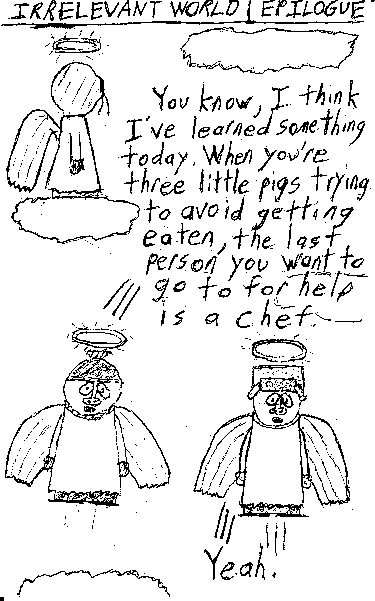 IRRELEVANT WORLD | EPILOGUE
You know, I think
I've learned something
today. When you're
three little pigs trying
to avoid getting
eaten, the last
person you want to
go to for help
is a chef.
Yeah.